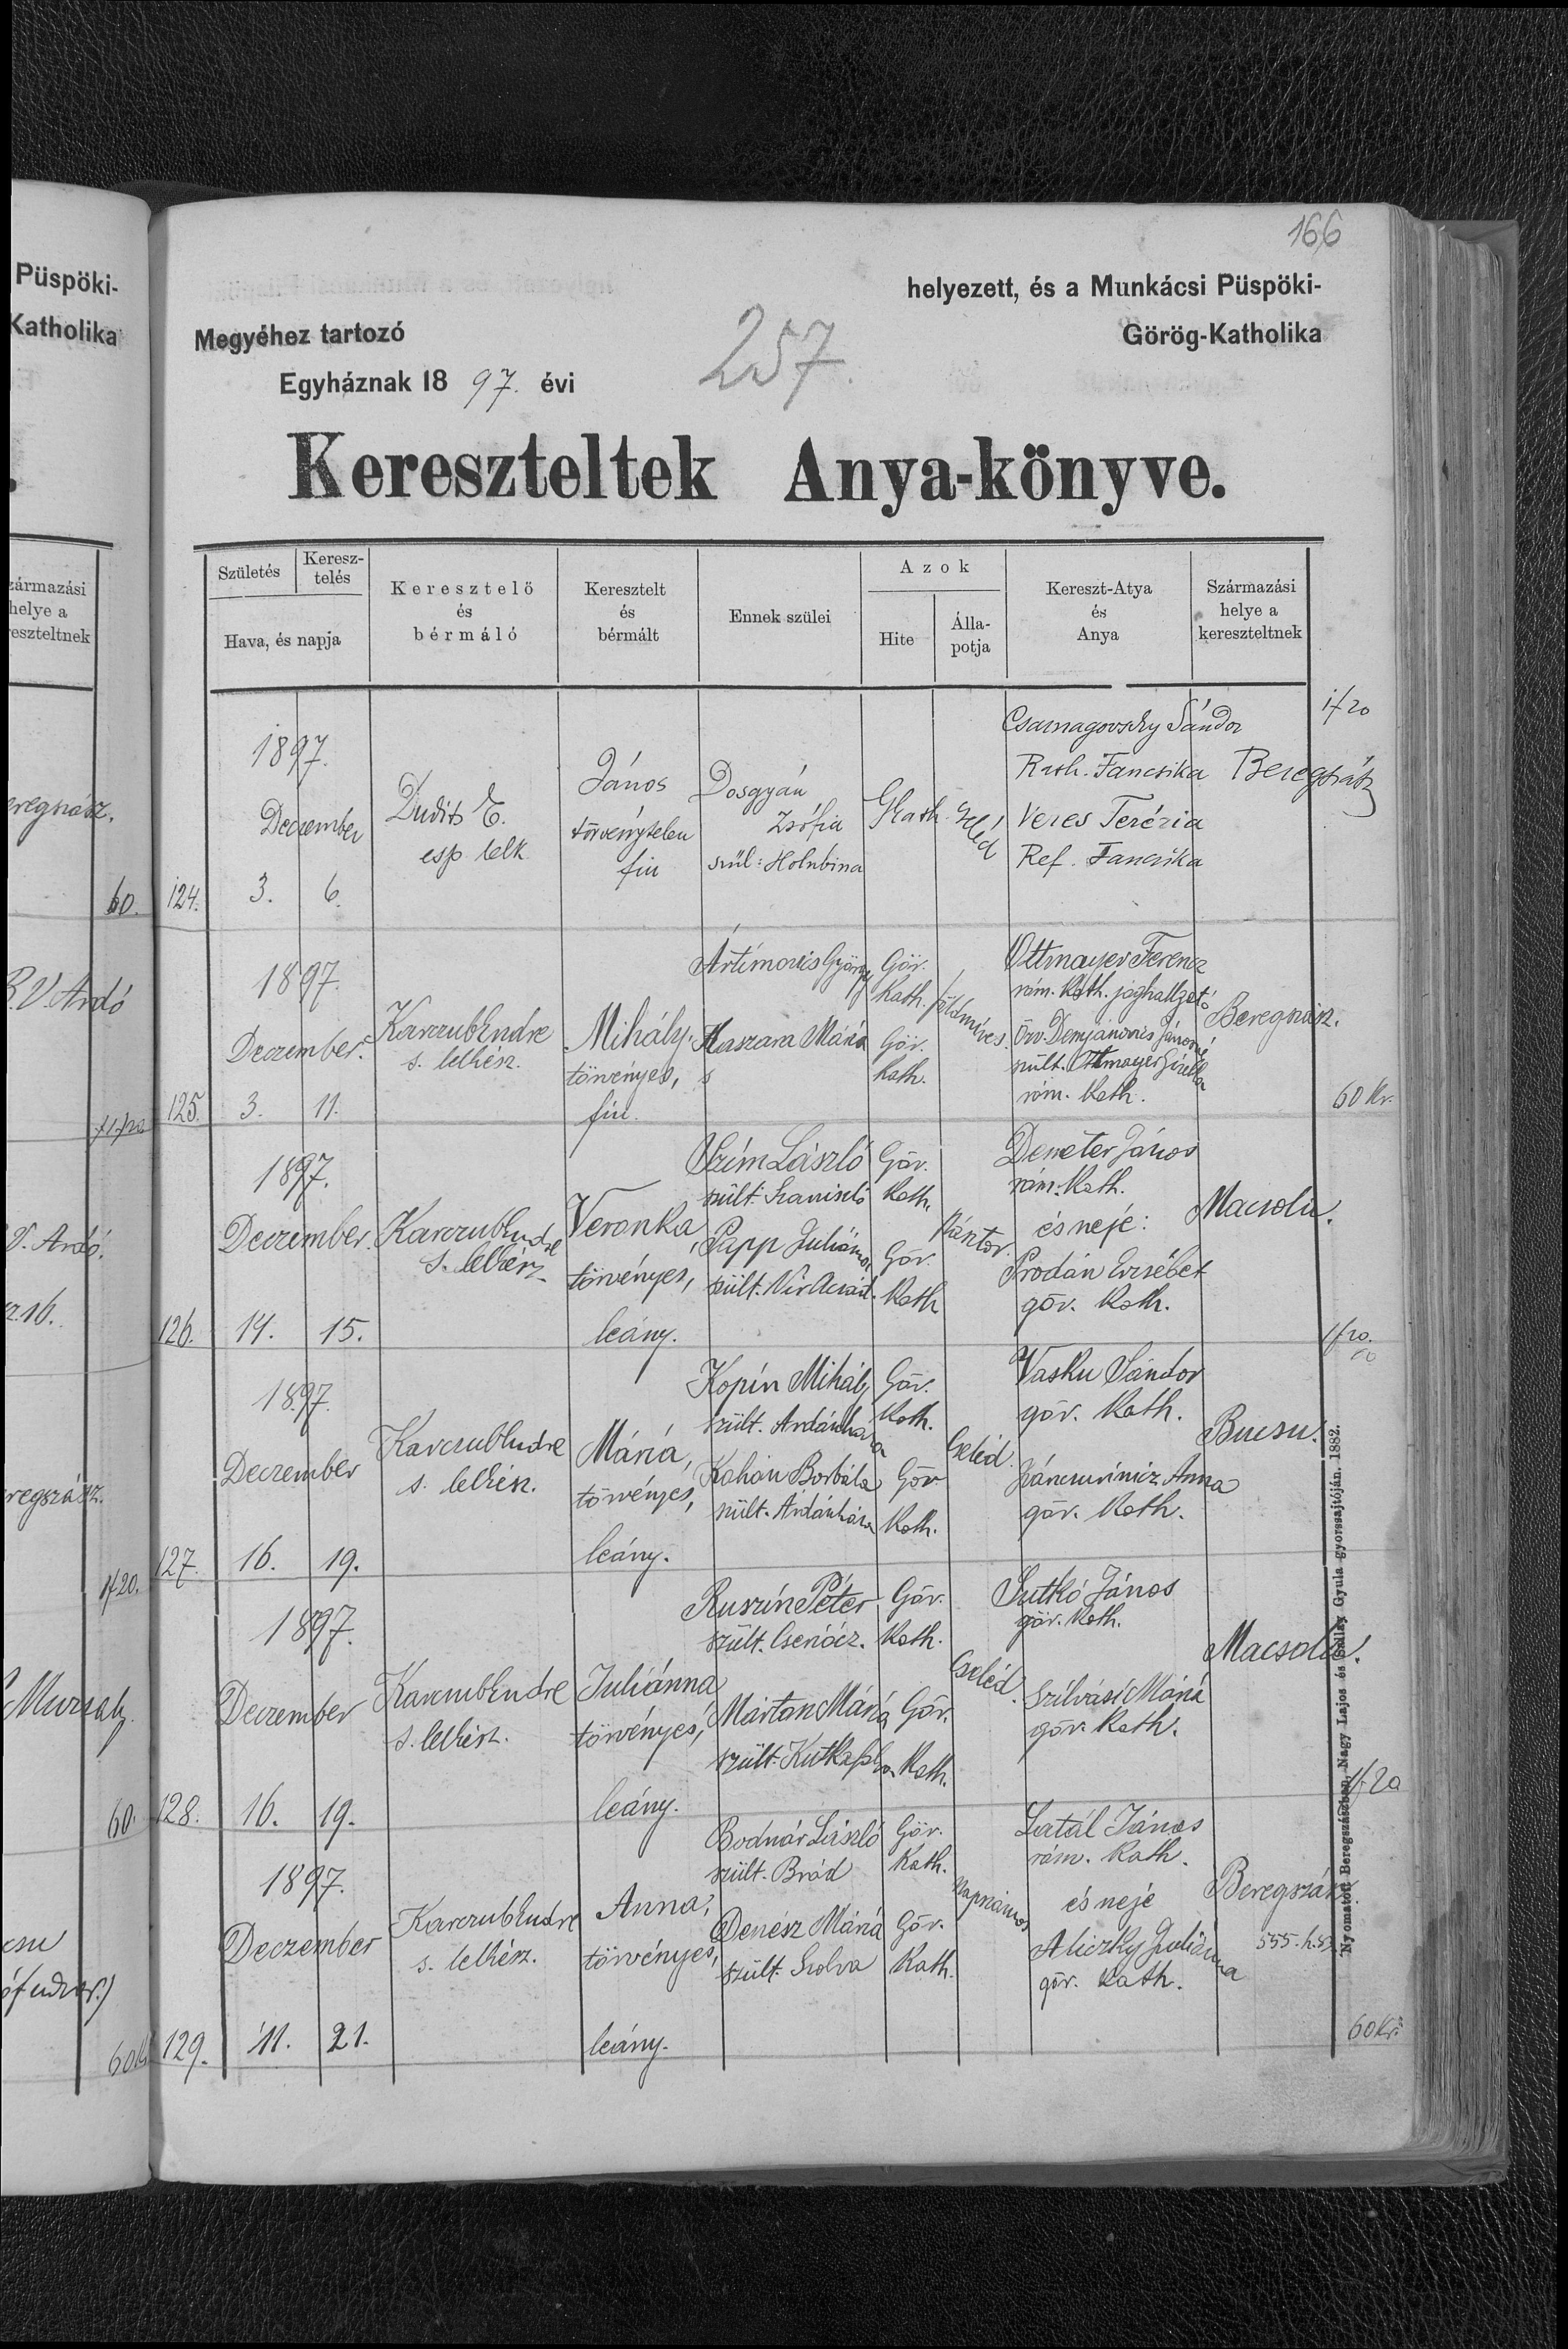 166
helyezett, és a Munkácsi Püspöki-
Megyéhez tartozó
Görög-Katholika
Egyháznak 1897. évi
257.
Kereszteltek Anya-könyve.
Születés
Keresz-
telés
Hava, és napja
Keresztelő
és
bérmáló
Keresztelt
és
bérmált
Ennek szülei
Azok
Hite
Álla-
potja
Kereszt-Atya
és
Anya
Származási
helye a
kereszteltnek
124.
1897.
Deczember
3. 6.
Dudits E.
esp. lelk.
János
törvénytelen
fiu
Dosgyán
Zsófia
szül: Holubina
GKath
Csarnagovszky Sándor
Rkath. Fancsika
Veres Terézia
Ref. Fancsika
Beregszász
1f20
125.
1897.
Deczember.
3. 11.
Karczub Endre
s. lelkész.
Mihály,
törvényes,
fiu.
Artimovis György
Kaszara Mária
Gör.
Kath.
Gör.
Kath.
földmíves.
Ottmayer Ferencz
róm. Kath. joghallgató
Özv. Demjanovics Jánosné
szült. Ottmayer Gizella
róm. Kath.
Beregszász.
60 Kr.
126.
1897.
Deczember.
14. 15.
Karczub Endre
s. lelkész
Veronka,
törvényes,
leány.
Szím László
szült. Szaniszló
Papp Juliánna
szült. Nír Acsád.
Göv.
Kath.
Göv.
Kath
Kántor.
Demeter János
róm. Kath.
és neje:
Prodán Erzsébet
göv. Kath.
Macsola.
1f20.
127.
1897.
Deczember
16. 19.
Karczub Endre
s. lelkész.
Mária,
törvényes,
leány.
Kopin Mihály
szült. Ardánháza
Kohán Borbála
szült. Ardánháza
Göv.
Kath.
Göv
Kath.
Cseléd.
Vasku Sándor
göv. Kath.
Anna
göv. Kath.
Bucsu.
128.
1897.
Deczember
16. 19.
Karczub Endre
s. lelkész.
Juliánna
törvényes,
leány.
Ruszín Péter
szült. Cserócz.
Márton Mária
szült.
Göv.
Kath.
Göv.
Kath.
Cseléd.
Sutkó János
göv. Kath.
Szilvási Mária
göv. Kath.
Macsola.
1f20
129.
1897.
Deczember
11. 21.
Karczub Endre
s. lelkész.
Anna,
törvényes,
leány.
Bodnár László
szült. Bród
Denész Mária
szült. Szolva
Göv.
Kath.
Göv.
Kath.
napszámos
Latál János
róm. Kath.
és neje
Aliczky Juliánna
göv. Kath.
Beregszász.
555. h.sz.
60 Kr.
Nyomatott Beregszászban, Nagy Lajos és Sallay Gyula gyorssajtóján. 1882.
Püspöki-
Katholika
zármazási
helye a
reszteltnek
eregszász.
60.
R.V. Ardó
V. Ardó.
regszász.
1f20.
60.